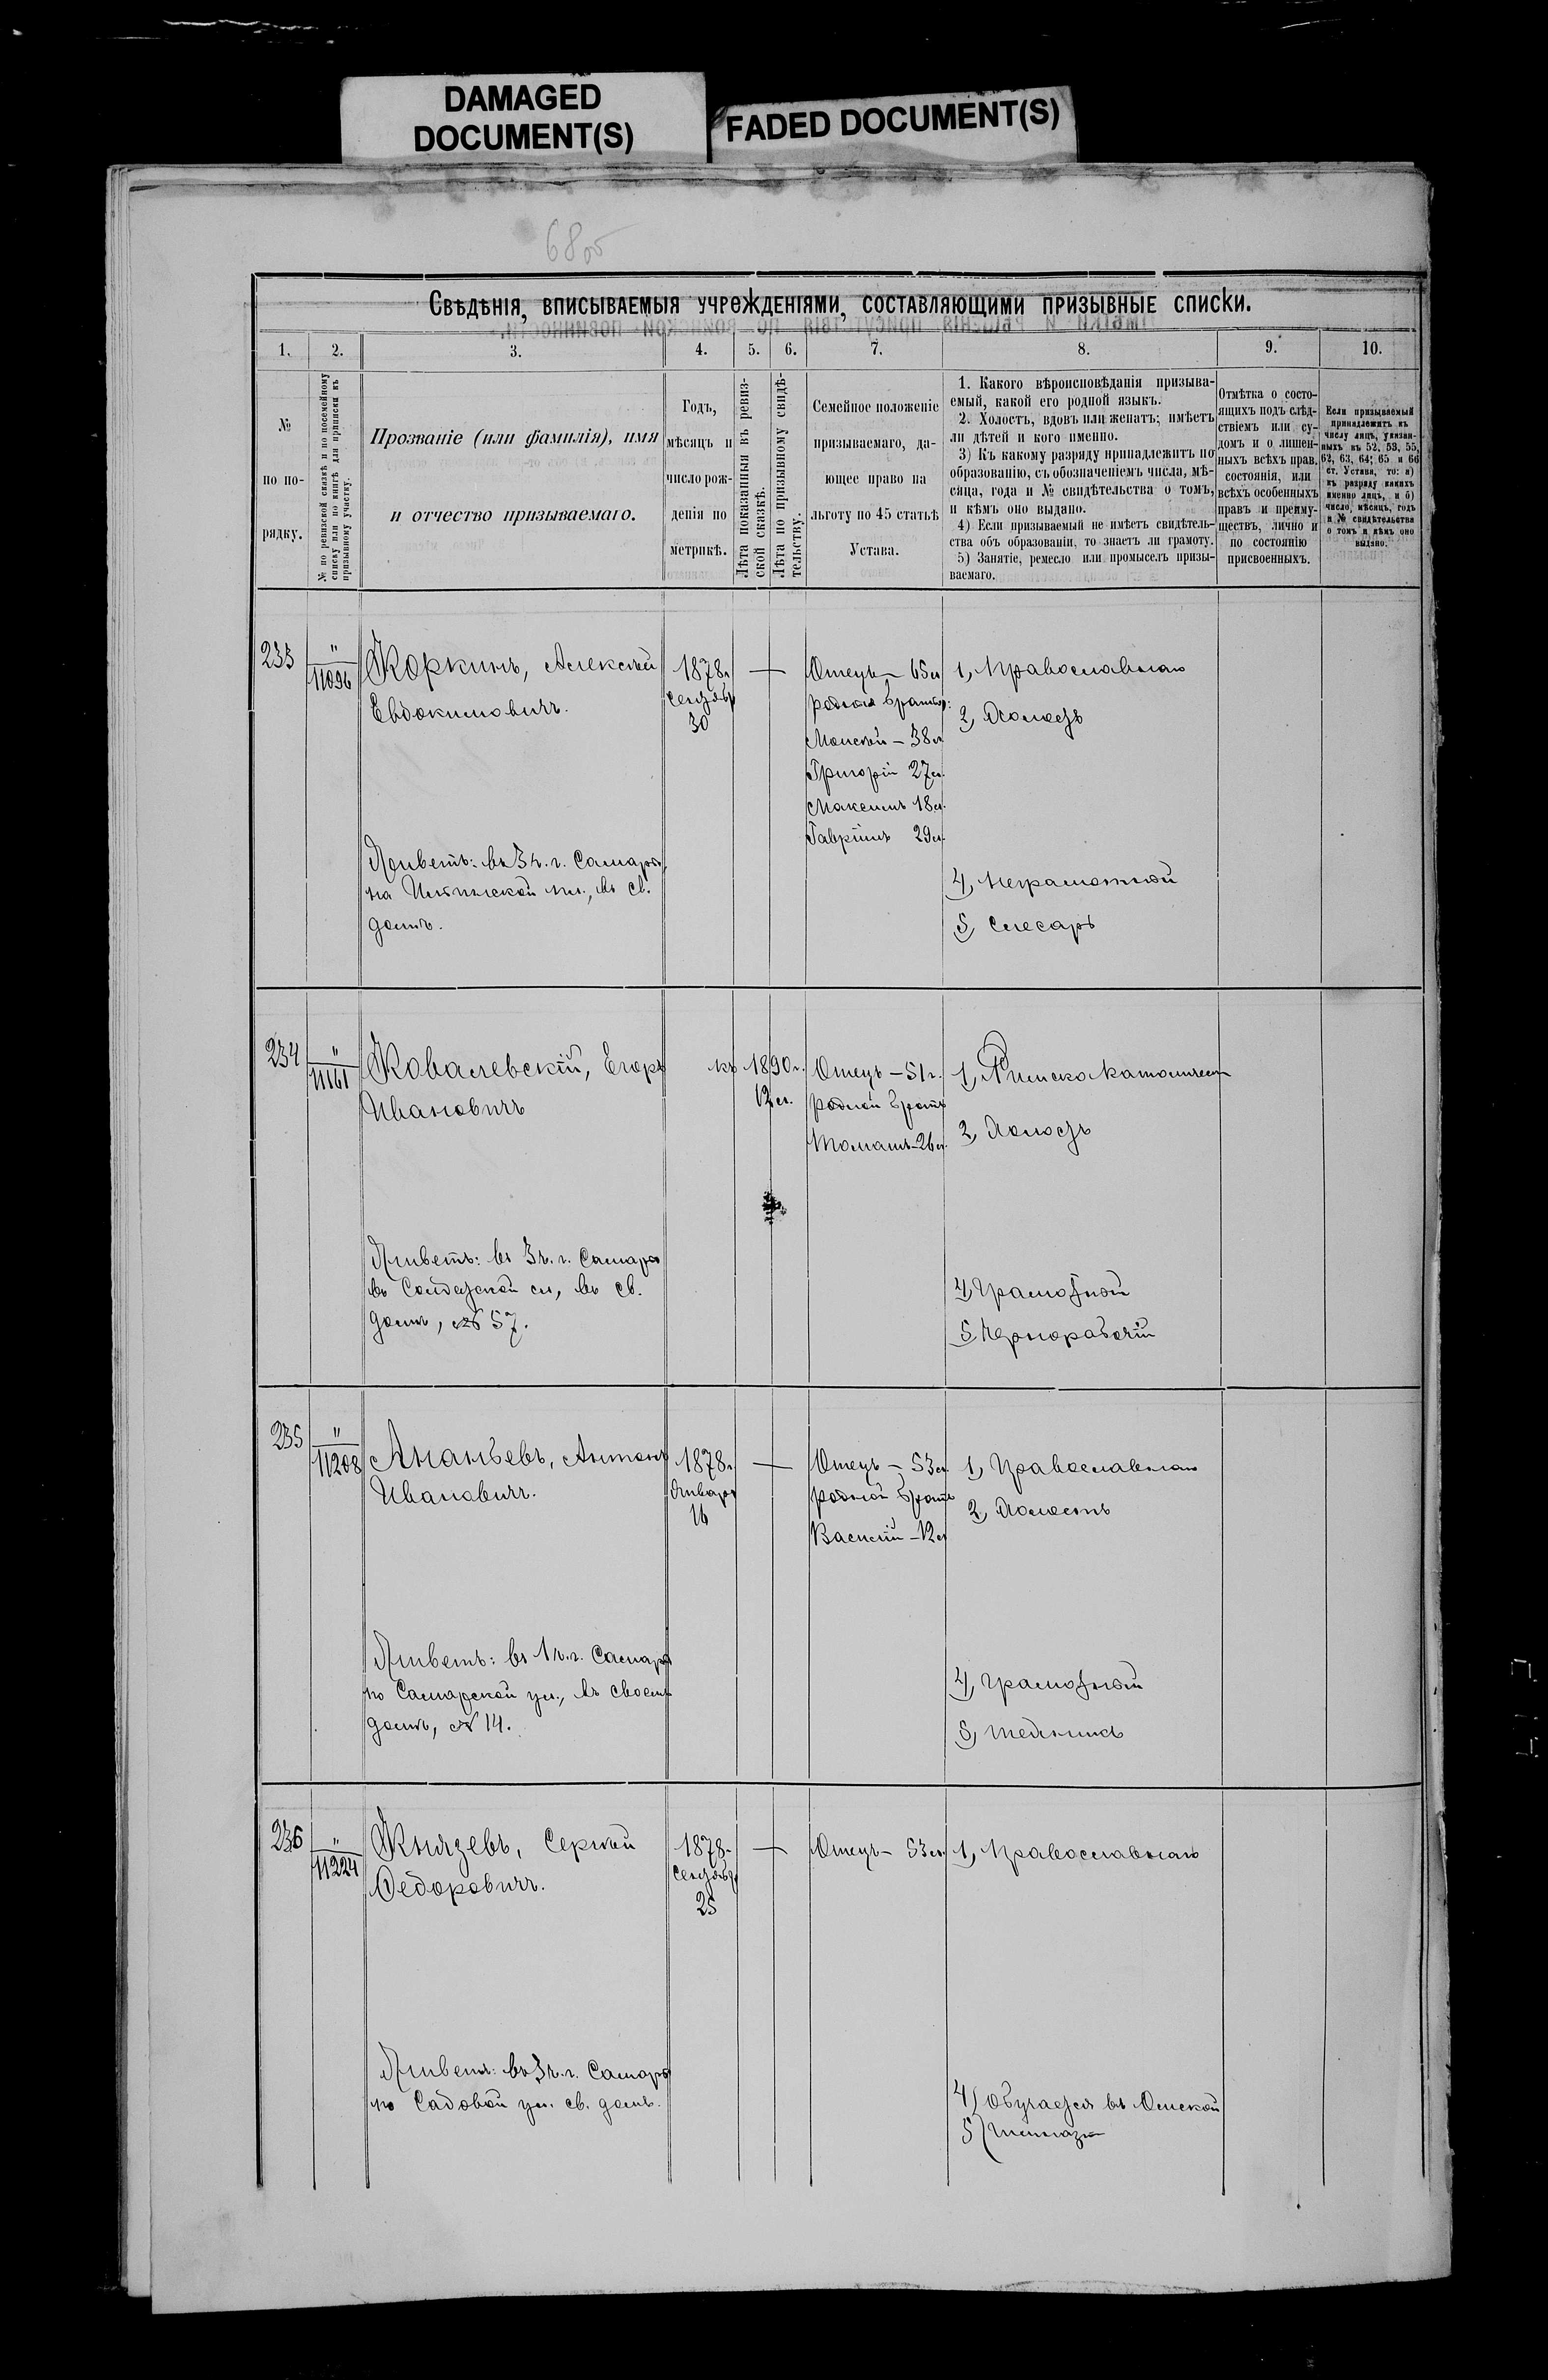 DAMAGED
DOCUMENT(S)
FADED DOCUMENT(S)
68об
Свѣдѣнія, вписываемыя учрежденіями, составляющими призывные списки.
1. 2. 3. 4. 5. 6. 7. 8. 9. 10.
№
по по-
рядку.
№ по ревизской сказкѣ и по посемейному
списку или по книгѣ для приписки къ
призывному участку.
Прозваніе (или фамилія), имя
и отчество призываемаго.
Годъ,
мѣсяцъ и
число рож-
денія по
метрикѣ.
Лѣта показанныя въ ревиз-
ской сказкѣ.
Лѣта по призывному свидѣ-
тельству.
Семейное положеніе
призываемаго, да-
ющее право на
льготу по 45 статьѣ
Устава.
1. Какого вѣроисповѣданія призыва-
емый, какой его родной языкъ.
2. Холостъ, вдовъ или женатъ; имѣетъ
ли дѣтей и кого именно.
3) Къ какому разряду принадлежитъ по
образованію, съ обозначеніемъ числа, мѣ-
сяца, года и № свидѣтельства о томъ,
и кѣмъ оно выдано.
4) Если призываемый не имѣетъ свидѣтель-
ства объ образованіи, то знаетъ ли грамоту.
5) Занятіе, ремесло или промыселъ призы-
ваемаго.
Отмѣтка о состо-
ящихъ подъ слѣд-
ствіемъ или су-
домъ и о лишен-
ныхъ всѣхъ правъ
состоянія, или
всѣхъ особенныхъ
правъ и преиму-
ществъ, лично и
по состоянію
присвоенныхъ.
Если призываемый
принадлежитъ къ
числу лицъ, указан-
ныхъ въ 52, 53, 55,
62, 63, 64, 65 и 66
ст. Устава, то: а)
къ разряду какихъ
именно лицъ, и б)
число, мѣсяцъ, годъ
и № свидѣтельства
о томъ и кѣмъ оно
выдано.
233
"
11096
Коркинъ, Алексѣй
Евдокимовичъ.
1878г.
Сентябр
30
Отецъ – 65л
родные братья:
Моисей – 38л
Григорій 27л.
Максимъ 18л.
Гавріилъ 29л.
1, Православнаго
2, Холостъ
Живетъ: въ 3 ч. г. Самары,
на пл., въ св.
домѣ.
4, Неграмотной
5, Слесарь
234
"
11161
Ковалевскій, Егоръ
Ивановичъ
къ 1890г.
12 л.
Отецъ – 51г.
родной братъ
Томашъ – 26л.
1, Римскокатолическ
2, Холостъ
Живетъ: въ 3 ч. г. Самары
въ Солдатской сл, въ св.
домѣ, № 57.
4, Грамотной
5, Чернорабочій
235
"
11208
Ананьевъ, Антонъ
Ивановичъ.
1878г.
Января
16
Отецъ – 53л.
родной братъ
Василій – 12л
1, Православнаго
2, Холостъ
Живетъ: въ 1 ч. г. Самары
по Самарской ул., въ своемъ
домѣ, № 14.
4, Грамотной
5,
236
"
11224
Князевъ, Сергѣй
Федоровичъ.
1878г.
Сентябр
25
Отецъ – 53л.
1, Православнаго
Живетъ: въ 3 ч. г. Самары
по Садовой ул. св. домъ.
4) Обучается въ Омской
5) Гимназіи